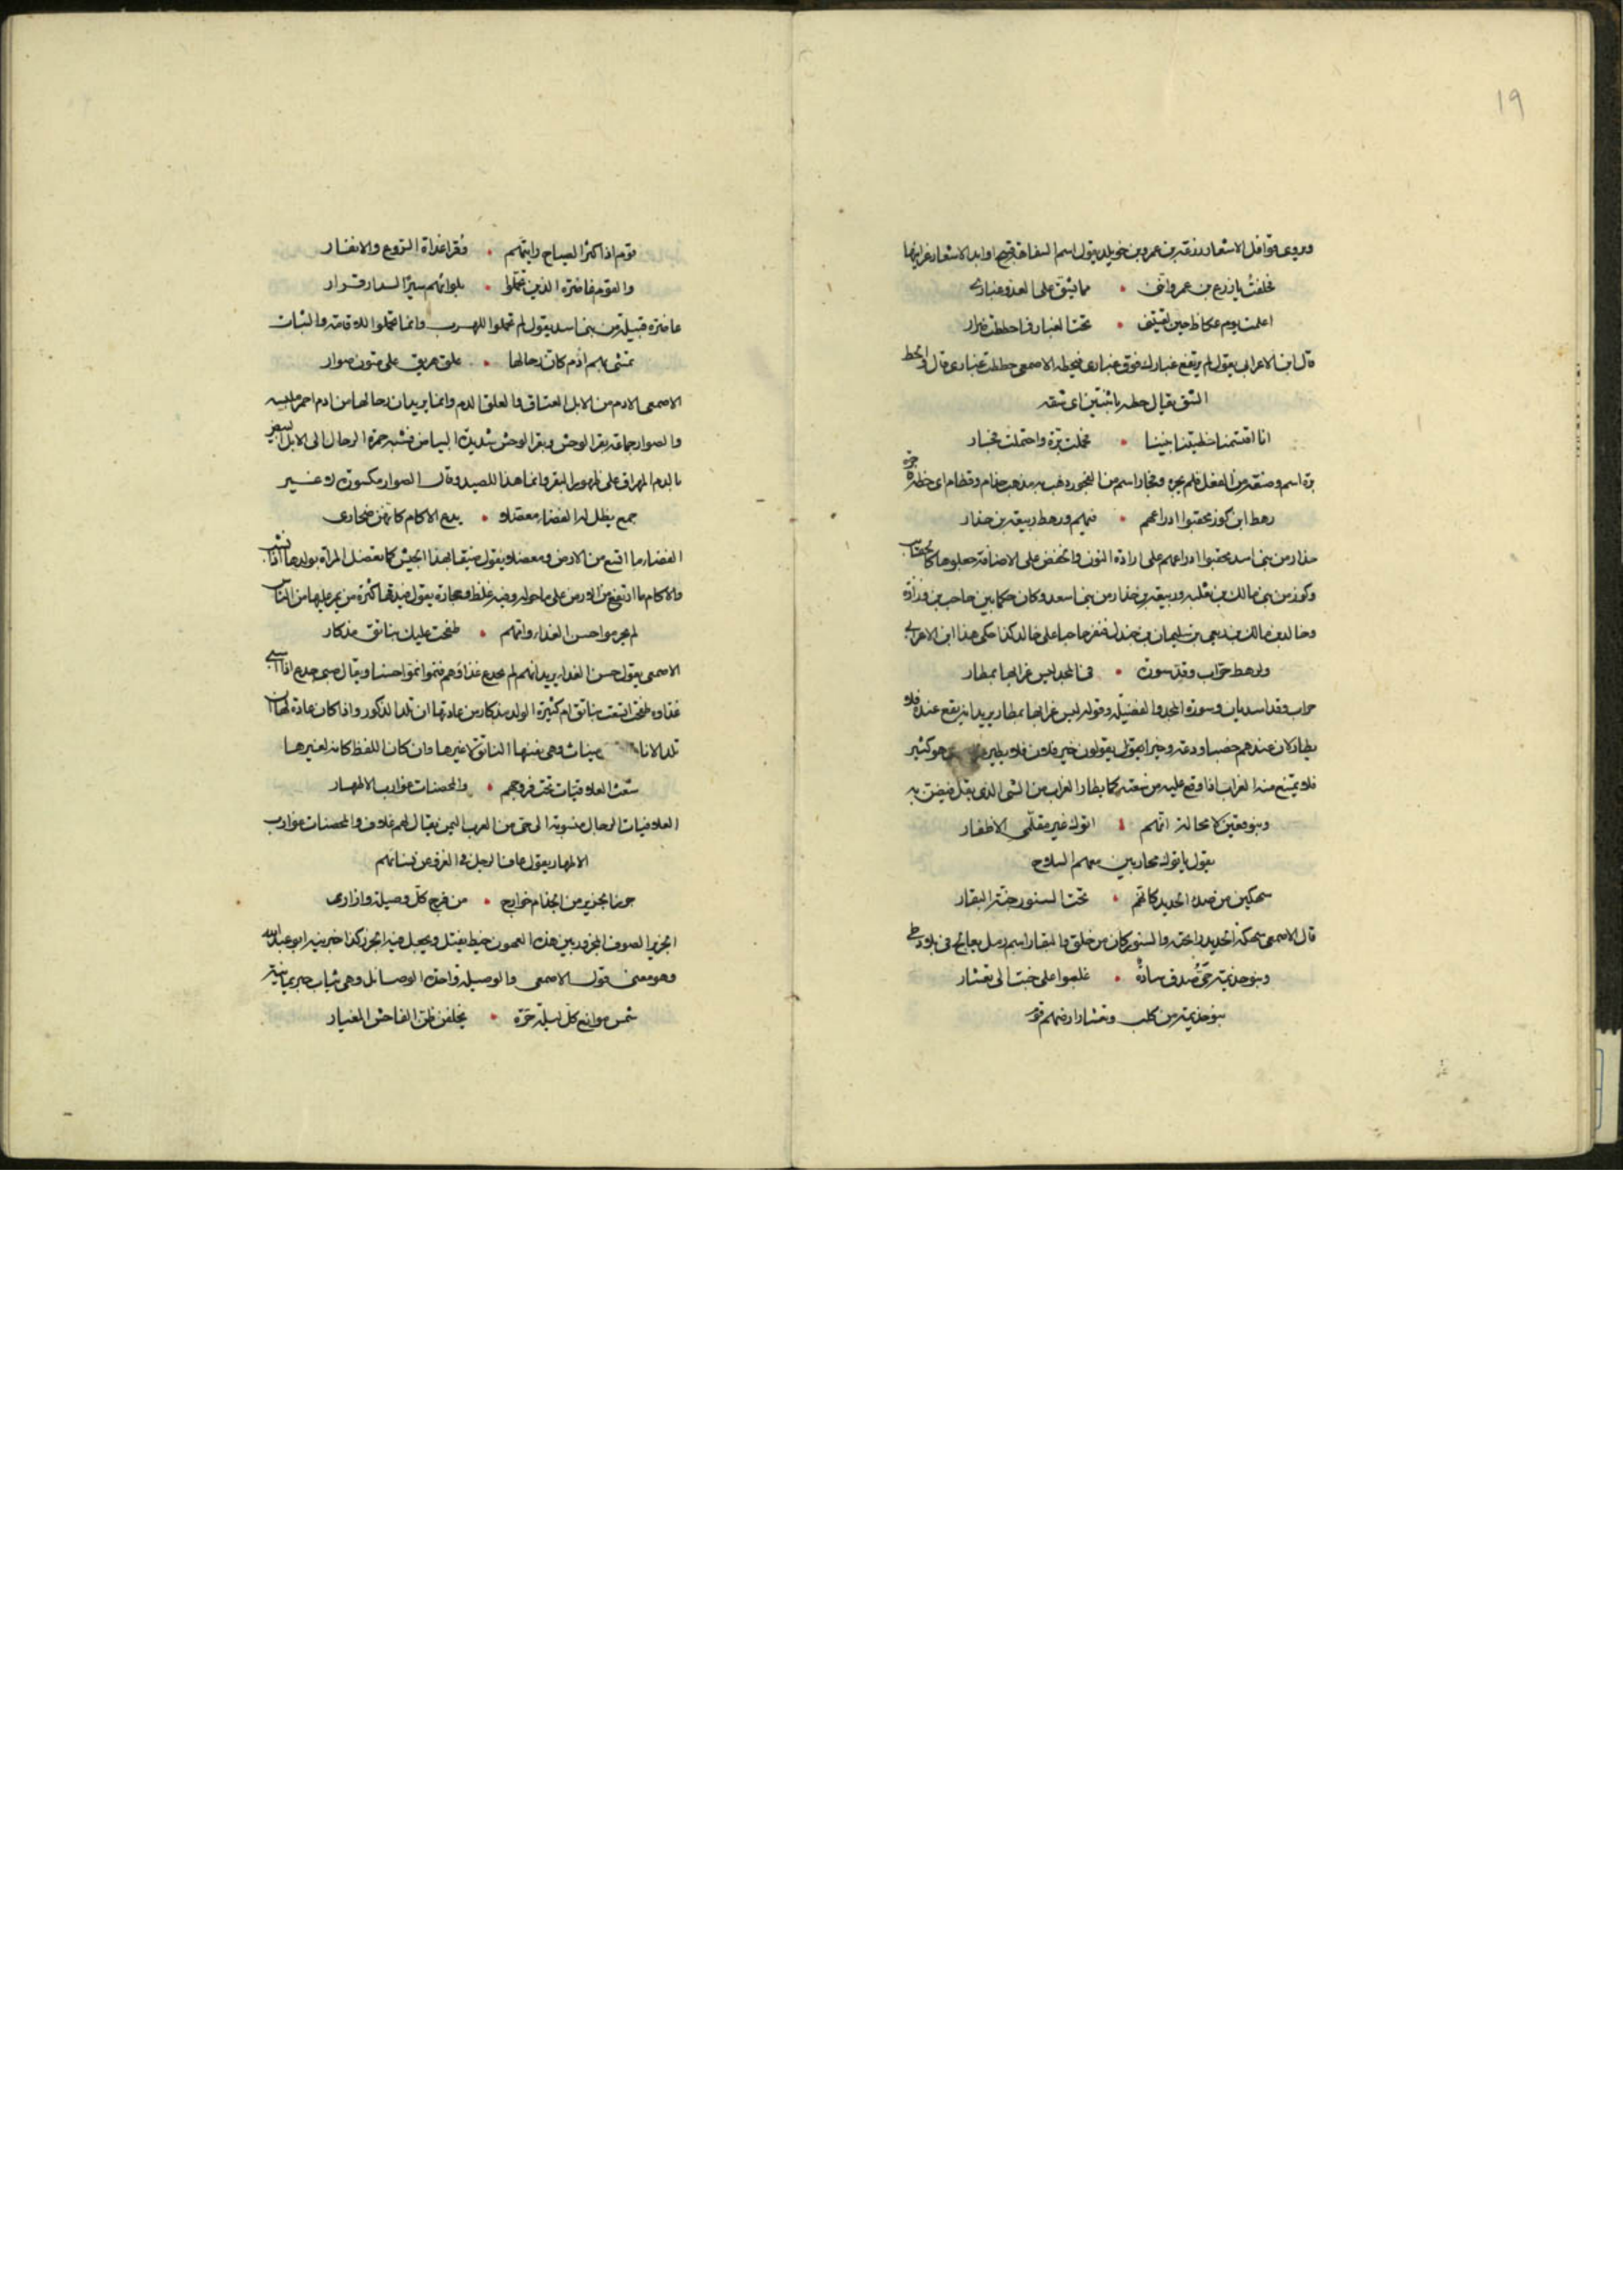 ١٩
ويروى قوافل الاشعار زرعة بن عمرو بن خويلد يقول اسم السفاهة قبيح اوابد الاشعار غرايبها
فحلفت يا زرع بن عمرو انني • مما يشق على العدو ضراري
اعلمت يوم عكاظ حين لقيتني • تحت الغبار فما حططت غباري
قال ابن الاعرابي يقول لم يرتفع غبارك فوق غباري فيحطه الاصمعي حططت غباري قال والحط
الشق يقال حطه اي شقه
انا اقتسمنا خطيتنا بيننا • فحملت برة واحتملت فجار
برة اسم وصفة من الفعل فلم يجره وفجار اسم من الفجور ذهب به مذهب حذام وقطام اي خطة
رهط ابن كوز محقبوا ادراعهم • فيهم ورهط ربيعة بن حذار
حذار من بني اسد محقبوا ادراعهم على ارادة النون والخفض على الاضافة جعلوها كالحقائب
وكوز من بني مالك بن ثعلبة وربيعة بن حذار من بني اسعد وكان حكما بين حاجب بن زرارة
وخالد بن مالك بن ربعي بن سليمان بن جندل فنفر حاجبا على خالد كذا حكى هذا ابن الاعرابي
ولرهط حراب وقد سورة • في المجد ليس غرابها بمطار
حراب وقد اسديان وسورة المجد والفضيلة وقوله ليس غرابها بمطار يريد انه يقع عنده فلا
يطار كان عندهم خصبا ودعة وخيرا يقول يقولون خير فلان فلا يطير هو كثير
فلا يمتنع منه الغراب اذا وقع عليه من سعته كما يطار الغراب من الشي الذي يقل فيضن به
وبنو قعين لا محالة انهم • اتوك غير مقلمي الاظفار
يقول ياتوك محاربين معهم السلاح
سهكين من صدء الحديد كانهم • تحت السنور جنة البقار
قال الاصمعي سهكة الحديد رائحته والسنور كان من حلق والبقار اسم رمل بعالج في بلاد طي
وبنو جذيمة حي صدق سادة • غلبوا على خبت الى تعشار
بنو جذيمة من كلب وتعشار ارضهم
قوم اذا كثر الصياح رايتهم • وقرا غداة الروع والانفار
والقوم غاضرة الذين تحملوا • بلوائهم سيرا لدار قرار
غاضرة قبيلة من بني اسد يقول لم تحملوا للهرب وانما تحملوا للاقامة والثبات
تمشي بهم ادم كان رحالها • علق هريق على متون صوار
الاصمعي الادم من الابل العتاق والعلق الدم وانما يريد ان رحالها من ادم احمر ملبسه
والصوار جماعة بقر الوحش وبقر الوحش شديدة البياض فشبه حمرة الرحال الى الابل البيض
بالدم المهراق على ظهور البقر وانما هذا للصيد وقال الصوار مكسورة لا غير
جمع يظل له الفضاء معضلا • يدع الاكام كانهن صحاري
الفضاء ما اتسع من الارض ومعضلا يقول ضيقا بهذا الجيش كما تعضل المراة بولدها اذا نشب
والاكام ما ارتفع من الارض على ما حوله وفيه غلظ وحجارة يقول فيدقها كثرة من يمر عليها من الناس
لم يحرموا حسن الغذاء وانهم • طفحت عليك بناتق مذكار
الاصمعي يقول حسن الغذاء يريد انهم لم يجدع غذاؤهم فنموا نموا حسنا ويقال صبي جدع اذا اسي
غذاوه طفحت اتسعت بناتق ام كثيرة الولد مذكار من عادتها ان تلد الذكور واذا كان عادتها ان
تلد الاناث ميناث وهي نفسها الناتق لا غيرها وان كان اللفظ كانه لغيرها
شعب العلافيات تحت فروجهم • والمحصنات عوازب الاطهار
العلافيات الرحال منسوبة الى حي من العرب اليمن يقال لهم علاف والمحصنات عوازب
الاطهار يقول هم في الغزو عن نسائهم
حوز الجزيز من الخدام خوارج • من فرج كل وصيلة وازار
الجزيز الصوف المجزوز بين هذه العهون خيط يفتل ويجعل فيه الخرز كذا اخبرنيه ابو عبدالله
وهو معنى قول الاصمعي والوصيلة واحدة الوصائل وهي ثياب حبر يمانية
شمس موانع كل ليلة حرة • يخلفن ظن الفاحش المغيار